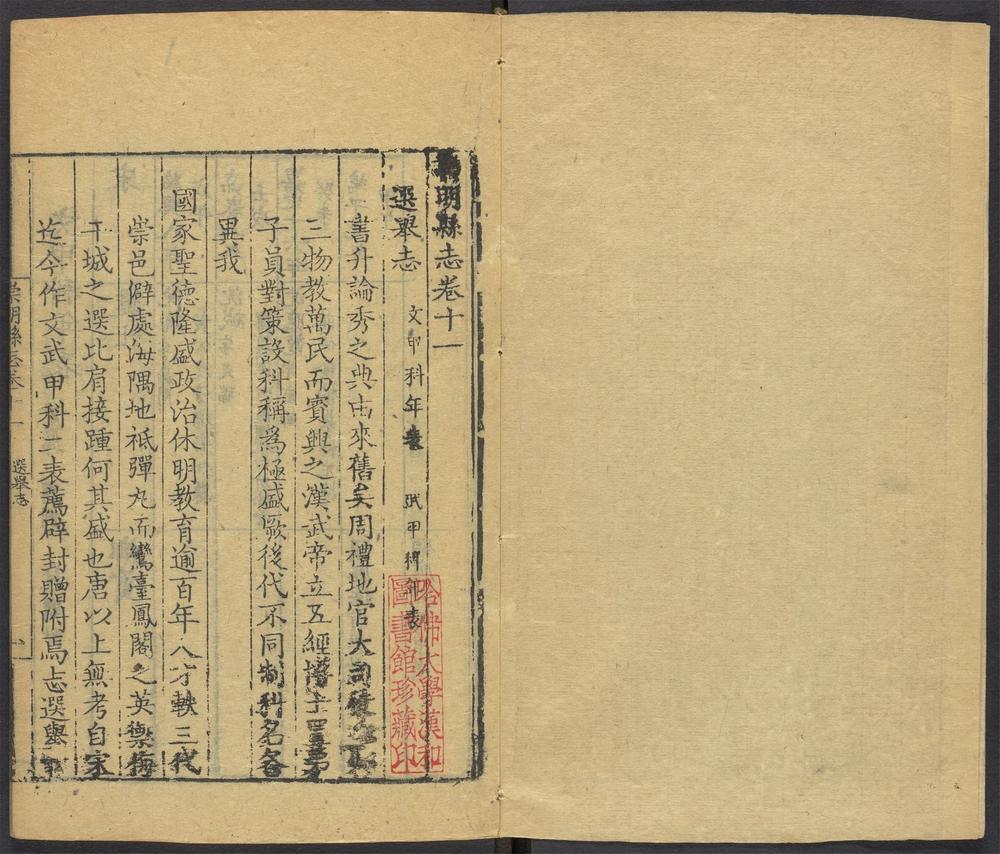 明縣志卷十一
選舉志　文甲科年表　武甲科年表
書升論秀之典由來舊矣周禮地官大司徒
三物教萬民而賓興之漢武帝立五經博士
子員對策設科稱爲極盛厥後代不同制科名各
異我
國家聖德隆盛政治休明教育逾百年人才軼三代
崇邑僻處海隅地祇彈丸而鸞臺鳳閣之英禦侮
干城之選比肩接踵何其盛也唐以上無考自宋
迄今作文武甲科二表薦辟封贈附焉志選舉
崇明縣志卷十一
選舉志
哈佛大學漢和
圖書館珍藏印